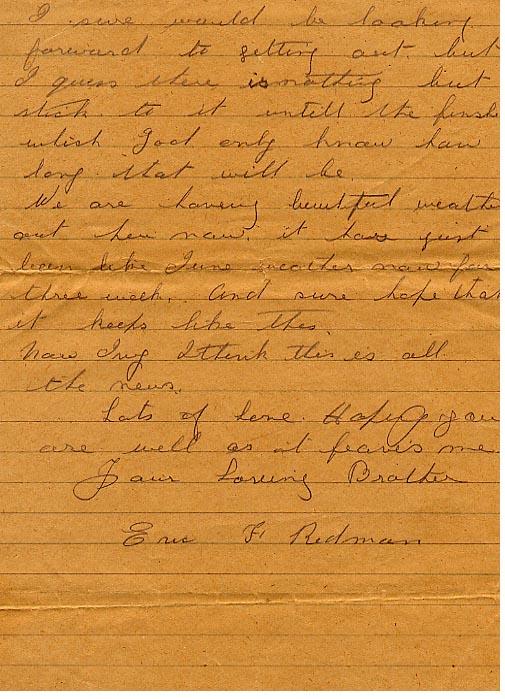 I sure would be looking
forward to getting out. but
I guess there is nothing but
stick to it untill the finish
which God only know how
long that will be.
We are having beautiful weather
out here now. it has just
been like June weather now for
three week. And sure hope that
it keeps like this.
Now I think this is all
the news.
Lots of love. Hoping you
are well as it leaves me
Your Loving Brother
Eric F Redman